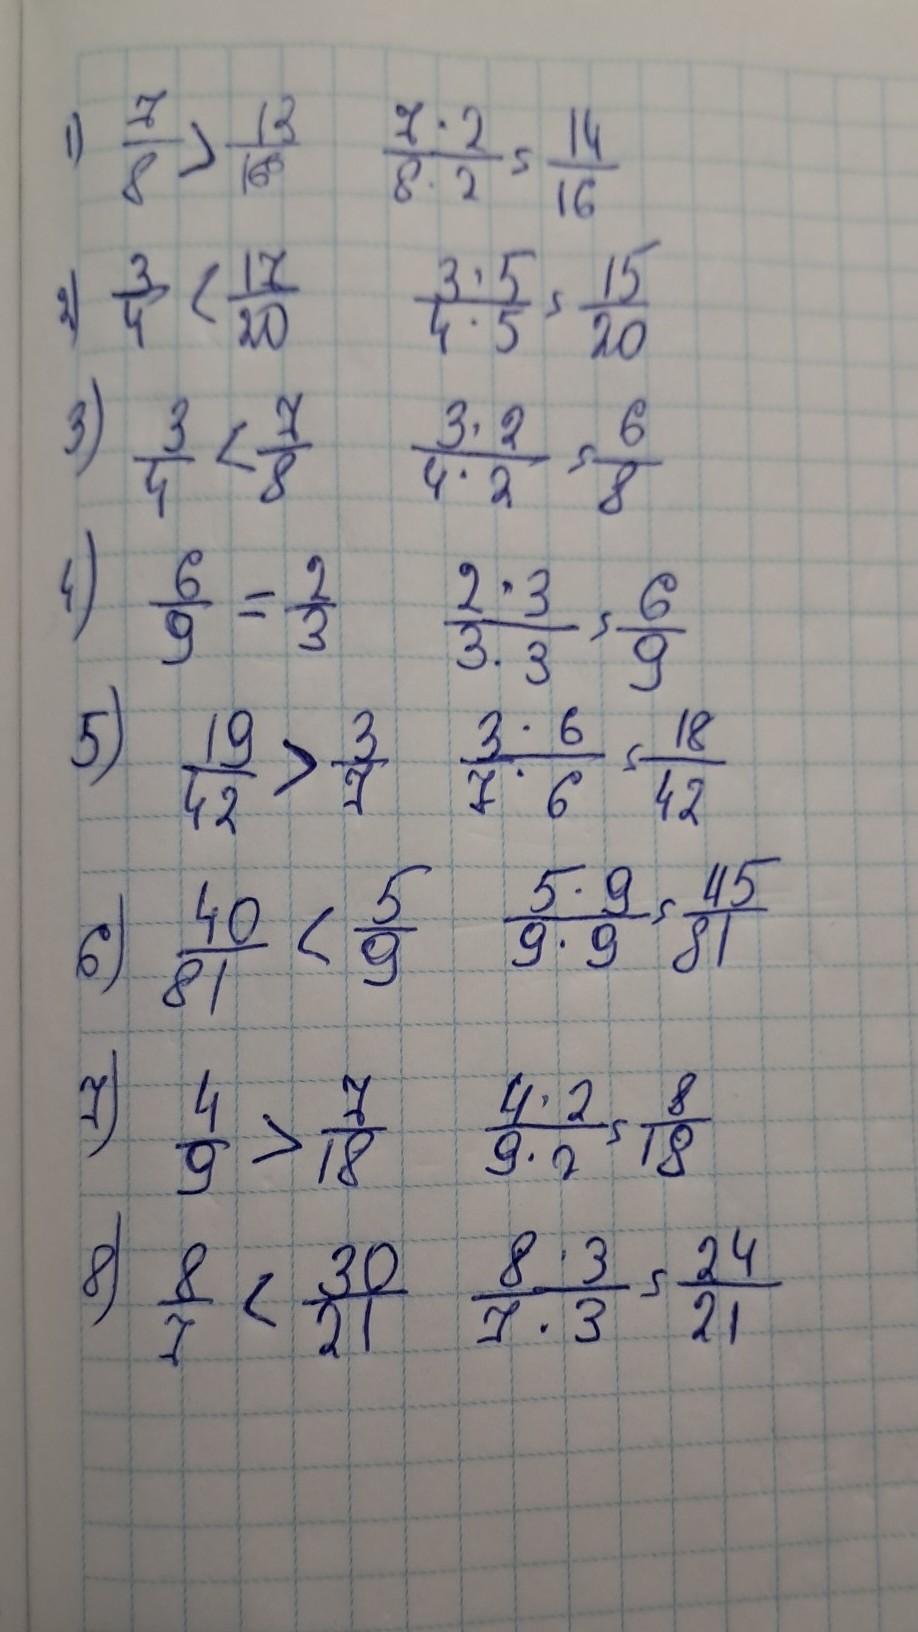 1) 7/8 > 13/16 7·2/8·2 = 14/16
2) 3/4 < 17/20 3·5/4·5 = 15/20
3) 3/4 < 7/8 3·2/4·2 = 6/8
4) 6/9 = 2/3 2·3/3·3 = 6/9
5) 19/42 > 3/7 3·6/7·6 = 18/42
6) 40/81 < 5/9 5·9/9·9 = 45/81
7) 4/9 > 7/18 4·2/9·2 = 8/18
8) 8/7 < 30/21 8·3/7·3 = 24/21